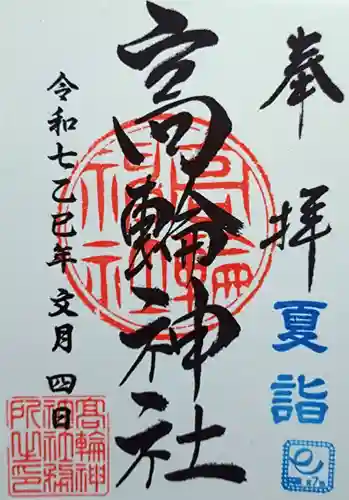 奉拝
夏詣
高輪神社
令和七乙巳年文月四日
高輪神社
高輪神社務所之印